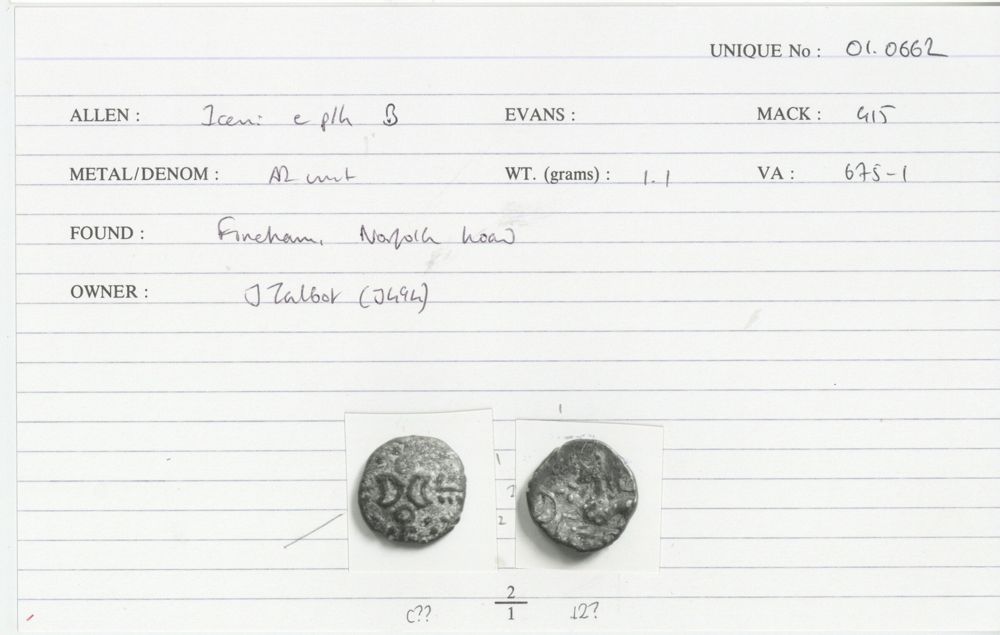 UNIQUE No : 01.0662
ALLEN : Iceni e plh B EVANS : MACK : 415
METAL/DENOM : AR unit WT. (grams) : 1.1 VA : 675-1
FOUND : Fincham, Norfolk hoard
OWNER : J Talbot (J494)
1
1
2
2
1
C?? 12?